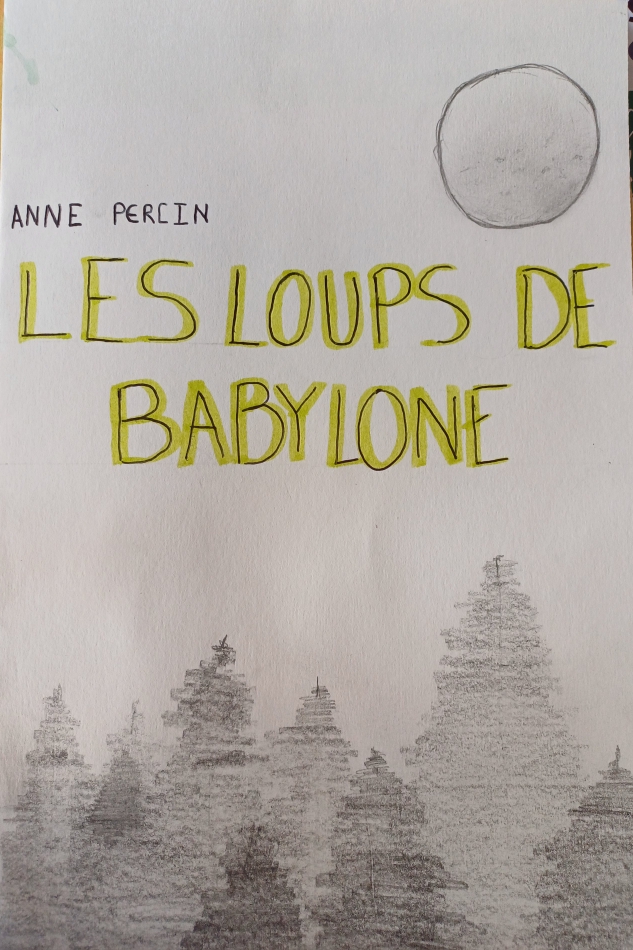 ANNE PERCIN
LES LOUPS DE
BABYLONE